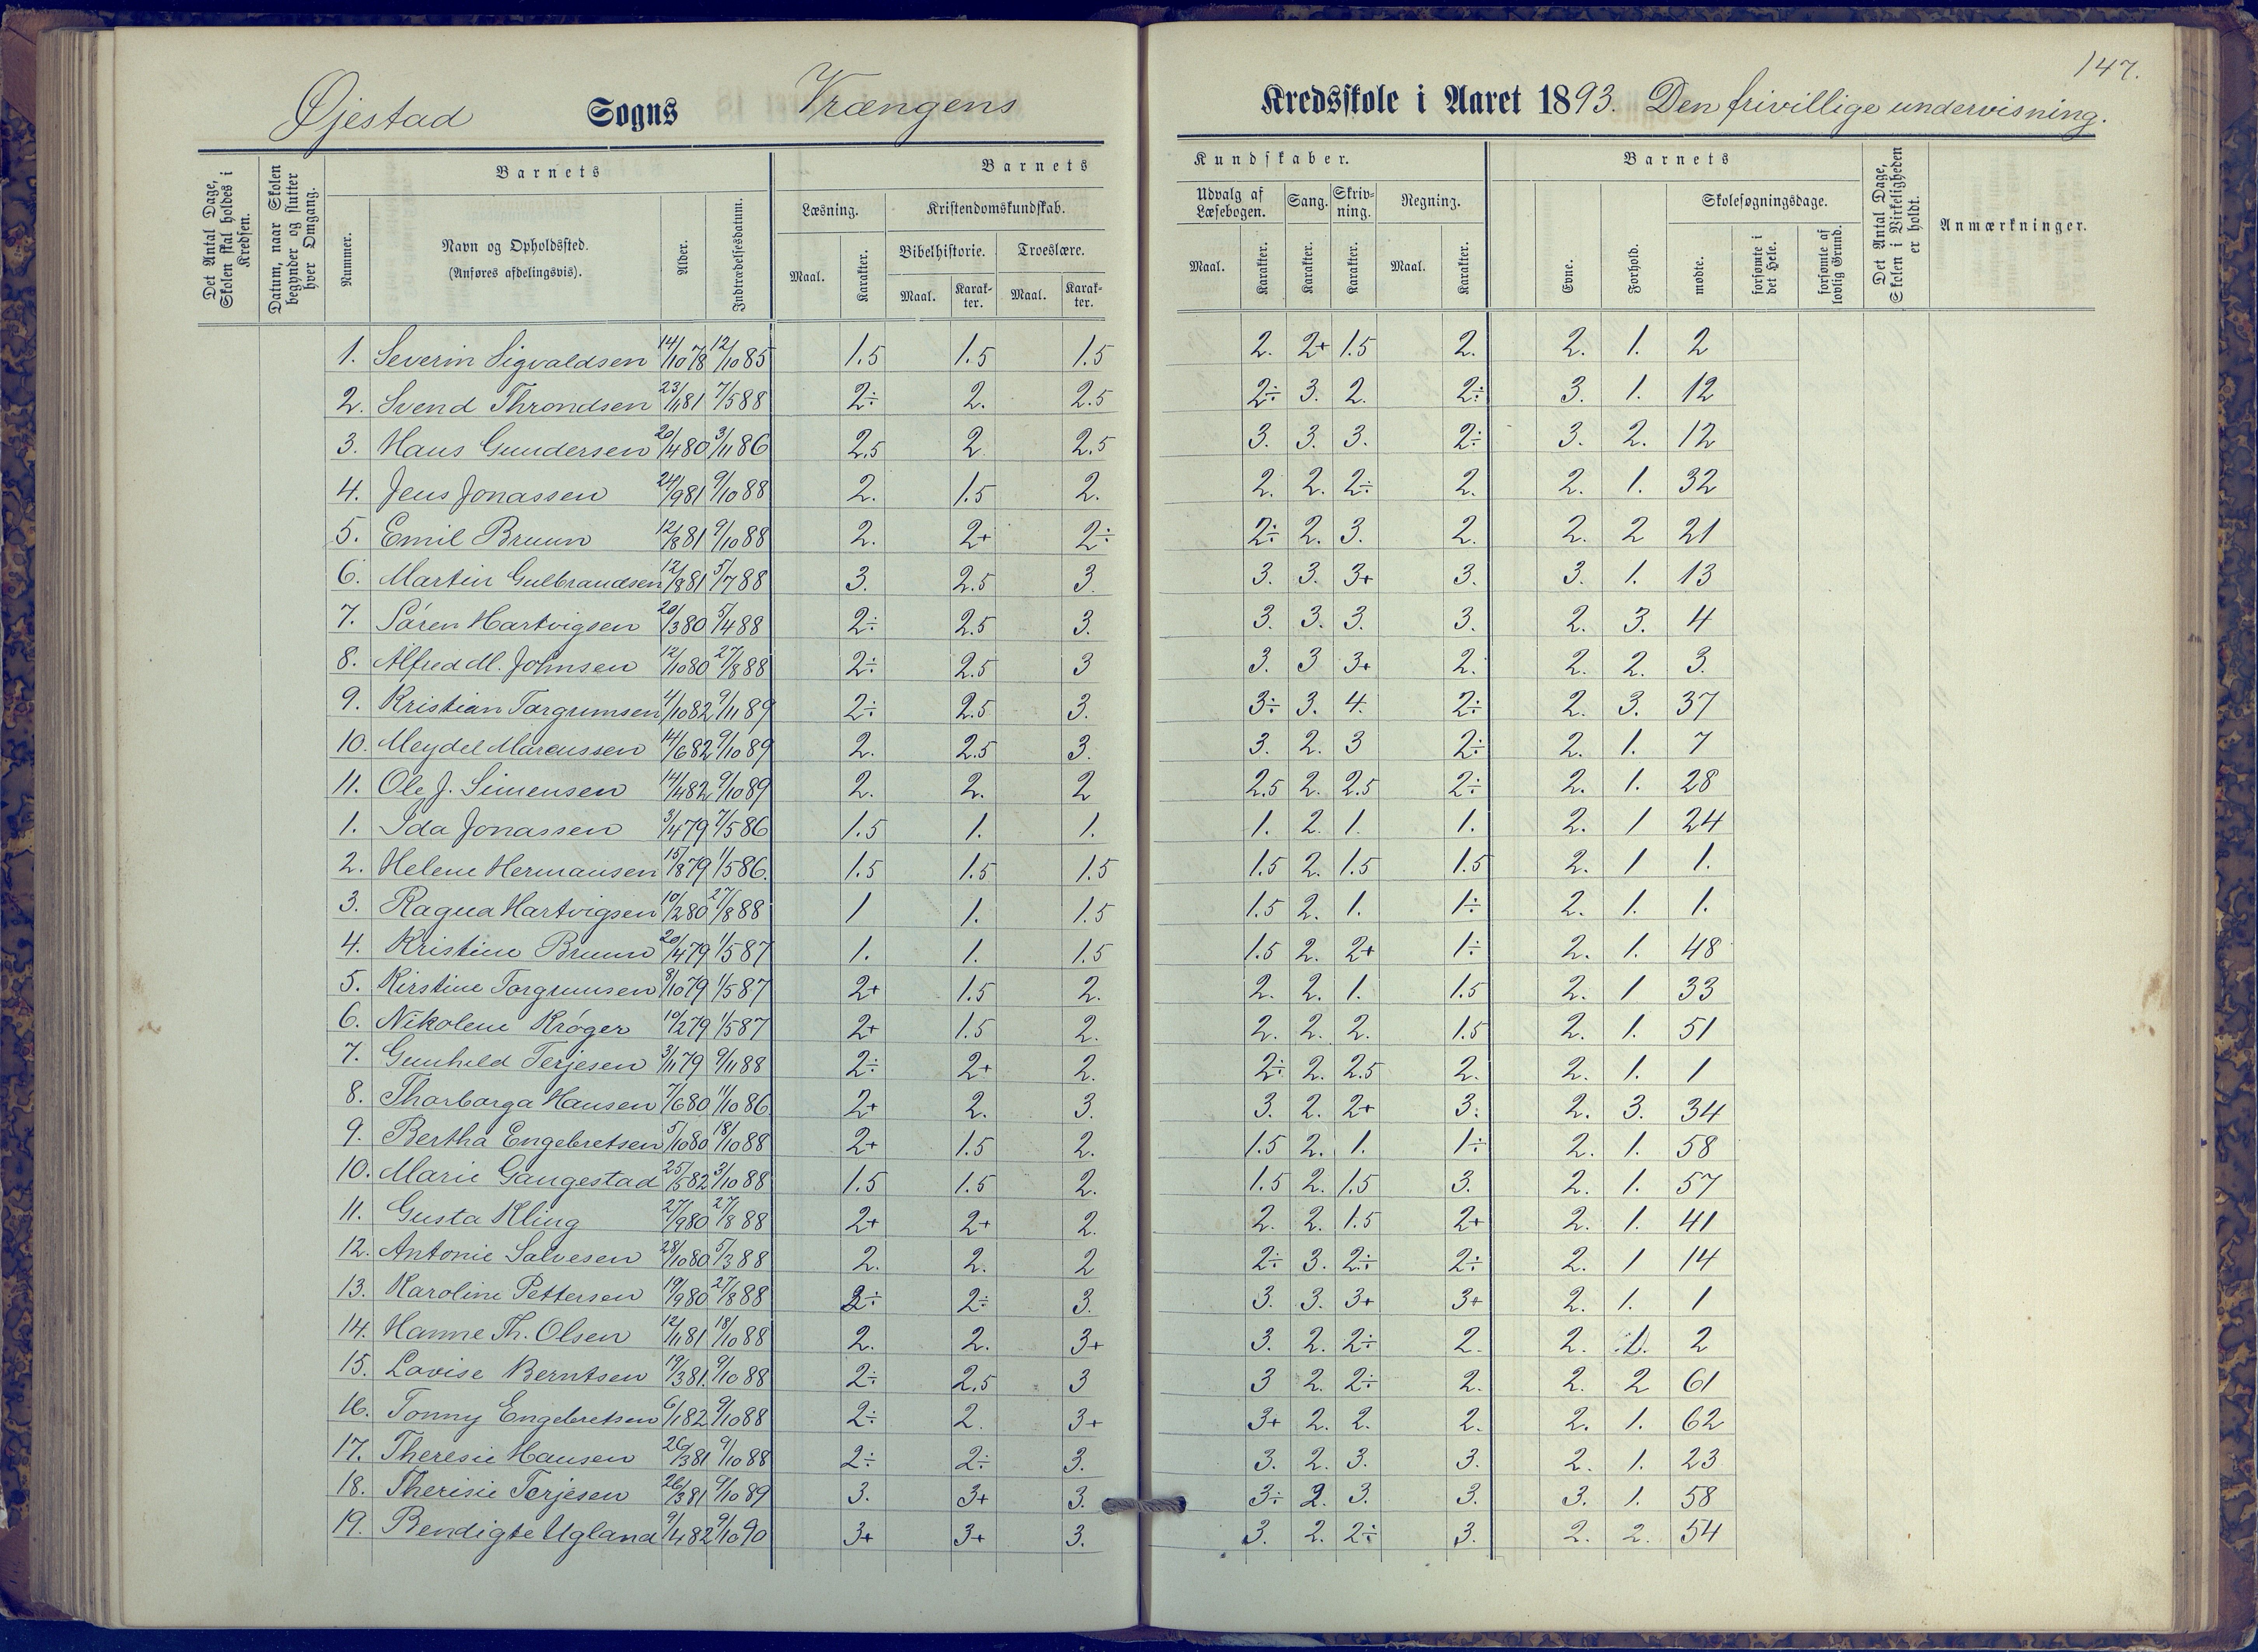 147.
Øjestad Sogns Vrængens Kredsskole i Aaret 1893. Den frivillige undervisning.
Det Antal Dage, Skolen skal holdes i Kredsen.
Datum, naar Skolen begynder og slutter hver Omgang.
Barnets
Nummer.
Navn og Opholdssted.
(Anføres afdelingsvis).
Alder.
Indtrædelsesdatum.
Barnets Kundskaber.
Læsning.
Maal. Karakter.
Kristendomskundskab.
Bibelhistorie. Troeslære.
Maal. Karakter. Maal. Karakter.
Udvalg af Læsebogen. Sang. Skrivning. Regning.
Maal. Karakter. Karakter. Karakter. Maal. Karakter.
Barnets
Evne. Forhold. Skolesøgningsdage.
mødte. forsømte i det Hele. forsømte af lovlig Grund.
Det Antal Dage, Skolen i Virkeligheden er holdt.
Anmærkninger.
1. Severin Sigvaldsen 14/10 78 12/10 85 1.5 1.5 1.5 2. 2+ 1.5 2. 2. 1. 2
2. Svend Throndsen 23/11 81 7/5 88 2÷ 2. 2.5 2÷ 3. 2. 2÷ 3. 1. 12
3. Hans Gundersen 20/4 80 3/11 86 2.5 2 2.5 3. 3. 3. 2÷ 3. 2. 12
4. Jens Jonassen 24/9 81 9/10 88 2. 1.5 2. 2. 2. 2÷ 2. 2. 1. 32
5. Emil Bruun 12/8 81 9/10 88 2. 2+ 2÷ 2÷ 2. 3. 2. 2. 2 21
6. Martin Gulbrandsen 12/8 81 5/7 88 3. 2.5 3. 3. 3. 3+ 3. 3. 1. 13
7. Søren Hartvigsen 20/3 80 5/4 88 2÷ 2.5 3. 3. 3. 3. 3. 2. 3. 4
8. Alfred M. Johnsen 12/10 80 27/8 88 2÷ 2.5 3 3. 3 3+ 2. 2. 2. 3.
9. Kristian Torgrumsen 4/10 82 9/11 89 2÷ 2.5 3. 3÷ 3. 4. 2÷ 2. 3. 37
10. Meydel Marcussen 14/6 82 9/10 89 2. 2.5 3. 3. 2. 3 2÷ 2. 1. 7
11. Ole J. Simensen 14/4 82 9/10 89 2. 2. 2 2.5 2. 2.5 2÷ 2. 1. 28
1. Ida Jonassen 3/4 79 7/5 86 1.5 1. 1. 1. 2. 1. 1. 2. 1 24
2. Helene Hermansen 15/8 79 1/5 86. 1.5 1.5 1.5 1.5 2. 1.5 1.5 2. 1 1.
3. Ragna Hartvigsen 10/2 80 27/8 88 1 1. 1.5 1.5 2. 1. 1÷ 2. 1. 1.
4. Kristine Bruun 20/4 79 1/5 87 1. 1. 1.5 1.5 2. 2+ 1÷ 2. 1. 48
5. Kirstine Torgrumsen 8/10 79 1/5 87 2+ 1.5 2. 2. 2. 1. 1.5 2. 1 33
6. Nikolene Krøger 10/2 79 1/5 87 2+ 1.5 2. 2. 2. 2. 1.5 2. 1. 51
7. Gunhild Terjesen 3/11 79 9/11 88 2÷ 2+ 2. 2÷ 2. 2.5 2. 2. 1. 1
8. Thorborga Hansen 7/6 80 11/10 86 2+ 2. 3. 3. 2. 2+ 3. 2. 3. 34
9. Bertha Engebretsen 5/10 80 18/10 88 2+ 1.5 2. 1.5 2. 1. 1÷ 2. 1. 58
10. Marie Gangestad 25/5 82 3/10 88 1.5 1.5 2. 1.5 2. 1.5 3. 2. 1. 57
11. Gusta Kling 27/9 80 27/8 88 2+ 2+ 2. 2. 2. 1.5 2+ 2. 1. 41
12. Antonie Salvesen 28/10 80 5/3 88 2. 2. 2 2÷ 3. 2÷ 2÷ 2. 1 14
13. Karoline Pettersen 19/9 80 27/8 88 2÷ 2÷ 3. 3. 3. 3+ 3+ 2. 1. 1
14. Hanne Th. Olsen 12/11 81 18/10 88 2. 2. 3+ 3. 2. 2÷ 2. 2. 1. 2
15. Lovise Berntsen 19/3 81. 9/10 88 2÷ 2.5 3 3 2. 2÷ 2. 2. 2 61
16. Tonny Engebretsen 6/1 82 9/10 88 2÷ 2. 3+ 3+ 2. 2. 2. 2. 1. 62
17. Theresie Hansen 26/3 81 9/10 88 2÷ 2÷ 3. 3. 2. 3. 3. 2. 1. 23
18. Therisie Terjesen 26/3 81 9/10 89 3. 3+ 3. 3÷ 2. 3. 3. 3. 1. 58
19. Bendigte Ugland 9/4 82 9/10 90 3+ 3+ 3. 3. 2. 2÷ 3. 2. 2. 54